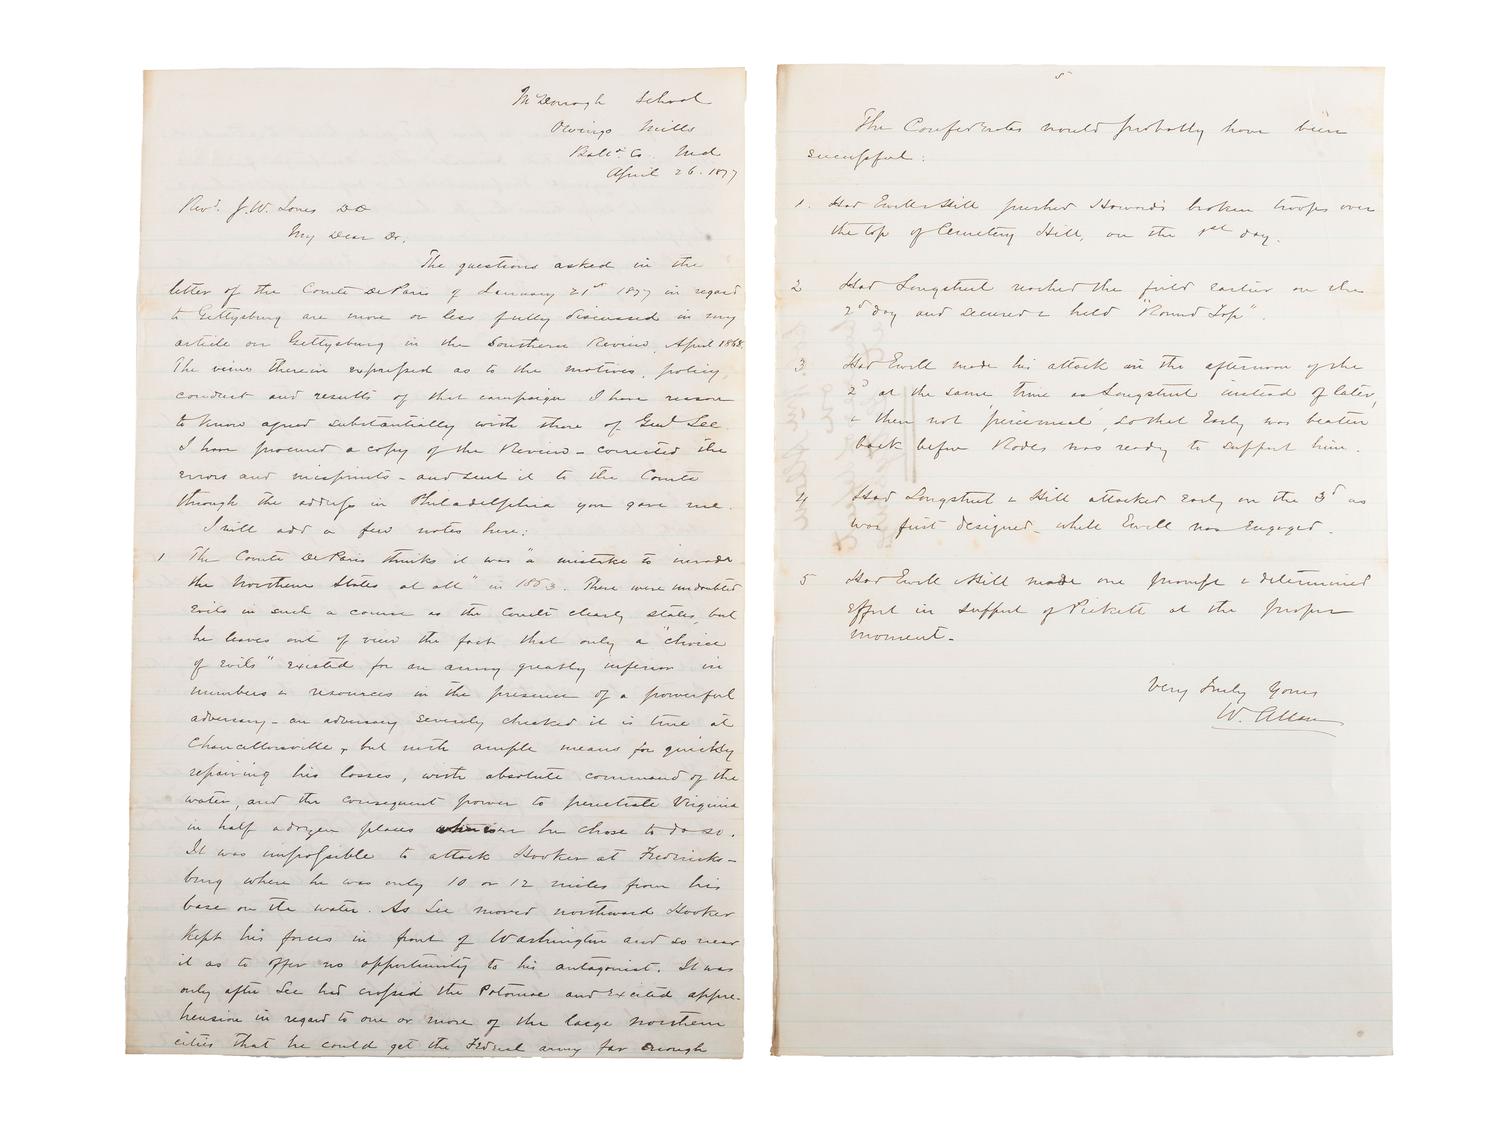 McDonogh School
Owings Mills
Balto. Co. Md
April 26. 1877
Revd. J. W. Jones DD
My Dear Dr.
The questions asked in the
letter of the Comte De Paris of January 21st 1877 in regard
to Gettysburg are more or less fully discussed in my
article on Gettysburg in the Southern Review, April 1868.
The views therein expressed as to the motives, policy,
conduct and results of that campaign I have reason
to know agreed substantially with those of Genl Lee.
I have procured a copy of the Review - corrected the
errors and misprints - and sent it to the Comte
through the address in Philadelphia you gave me.
I will add a few notes here:
1 The Comte De Paris thinks it was "a mistake to invade
the Northern States at all" in 1863. There were undoubted
evils in such a course as the Comte clearly states, but
he leaves out of view the fact that only a "choice
of evils" existed for an army greatly inferior in
numbers & resources in the presence of a powerful
adversary - an adversary severely checked it is true at
Chancellorsville, but with ample means for quickly
repairing his losses, with absolute command of the
water, and the consequent power to penetrate Virginia
in half a dozen places wherever he chose to do so.
It was impossible to attack Hooker at Fredericks-
burg where he was only 10 or 12 miles from his
base on the water. As Lee moved northward Hooker
kept his forces in front of Washington and so near
it as to offer no opportunity to his antagonist. It was
only after Lee had crossed the Potomac and excited appre-
hension in regard to one or more of the large northern
cities that he could get the Federal army far enough
5
The Confederates would probably have been
successful:
1. Had Ewell & Hill pushed Howard's broken troops over
the top of Cemetery Hill, on the 1st day.
2 Had Longstreet reached the field earlier on the
2d day and secured & held "Round Top".
3 Had Ewell made his attack in the afternoon of the
2d at the same time as Longstreet instead of later,
& then not 'piecemeal', so that Early was beaten
back before Rodes was ready to support him.
4 Had Longstreet & Hill attacked early on the 3d as
was first designed - while Ewell was engaged.
5 Had Ewell & Hill made one prompt & determined
effort in support of Pickett at the proper
moment -
Very Truly Yours
W. Allan